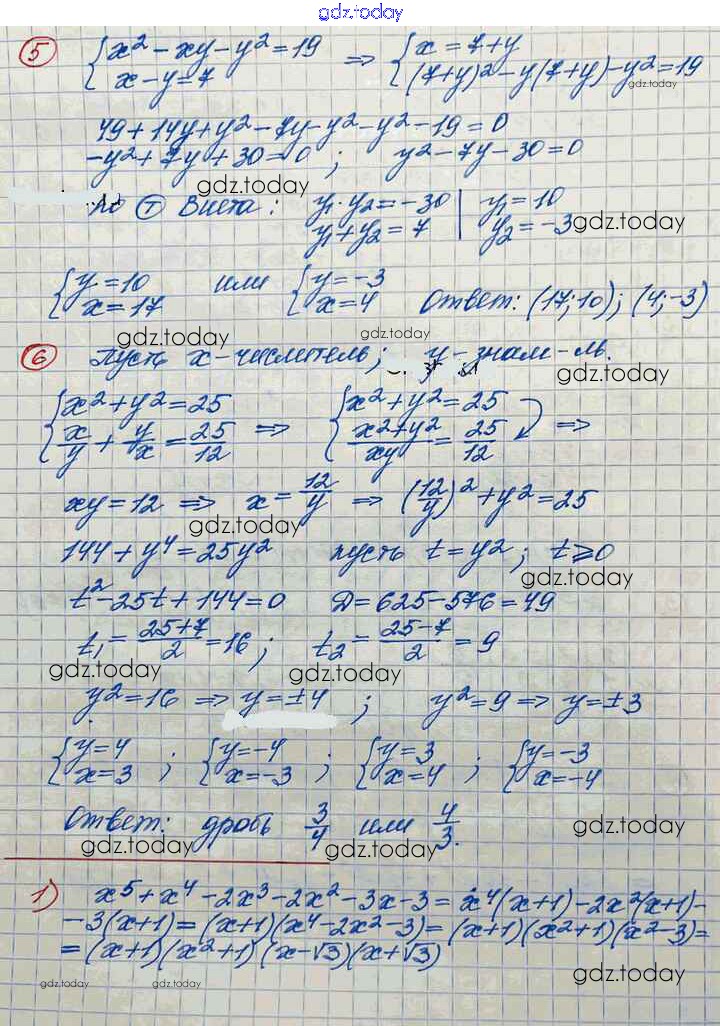 gdz.today
5 { x² - xy - y² = 19 ⇒ { x = 7 + y
x - y = 7 (7+y)² - y(7+y) - y² = 19
gdz.today
49 + 14y + y² - 7y - y² - y² - 19 = 0
-y² + 7y + 30 = 0 ; y² - 7y - 30 = 0
gdz.today
По Т Виета: y₁·y₂ = -30 | y₁ = 10
y₁ + y₂ = 7 | y₂ = -3 gdz.today
{ y = 10 или { y = -3
x = 17 x = 4 Ответ: (17; 10); (4; -3)
gdz.today gdz.today
6 Пусть x - числитель; y - знам-ль.
gdz.today
{ x² + y² = 25 ⇒ { x² + y² = 25 ⇒
x/y + y/x = 25/12 (x² + y²)/xy = 25/12
xy = 12 ⇒ x = 12/y ⇒ (12/y)² + y² = 25
gdz.today
144 + y⁴ = 25y² пусть t = y² ; t ⩾ 0
gdz.today
t² - 25t + 144 = 0 D = 625 - 576 = 49
t₁ = (25+7)/2 = 16 ; t₂ = (25-7)/2 = 9
gdz.today gdz.today
y² = 16 ⇒ y = ±4 ; y² = 9 ⇒ y = ±3
{ y = 4 ; { y = -4 ; { y = 3 ; { y = -3
x = 3 x = -3 x = 4 x = -4
Ответ: дробь 3/4 или 4/3. gdz.today
gdz.today gdz.today
1) x⁵ + x⁴ - 2x³ - 2x² - 3x - 3 = x⁴(x+1) - 2x²(x+1) -
- 3(x+1) = (x+1)(x⁴ - 2x² - 3) = (x+1)(x²+1)(x²-3) =
= (x+1)(x²+1)(x-√3)(x+√3)
gdz.today gdz.today gdz.today